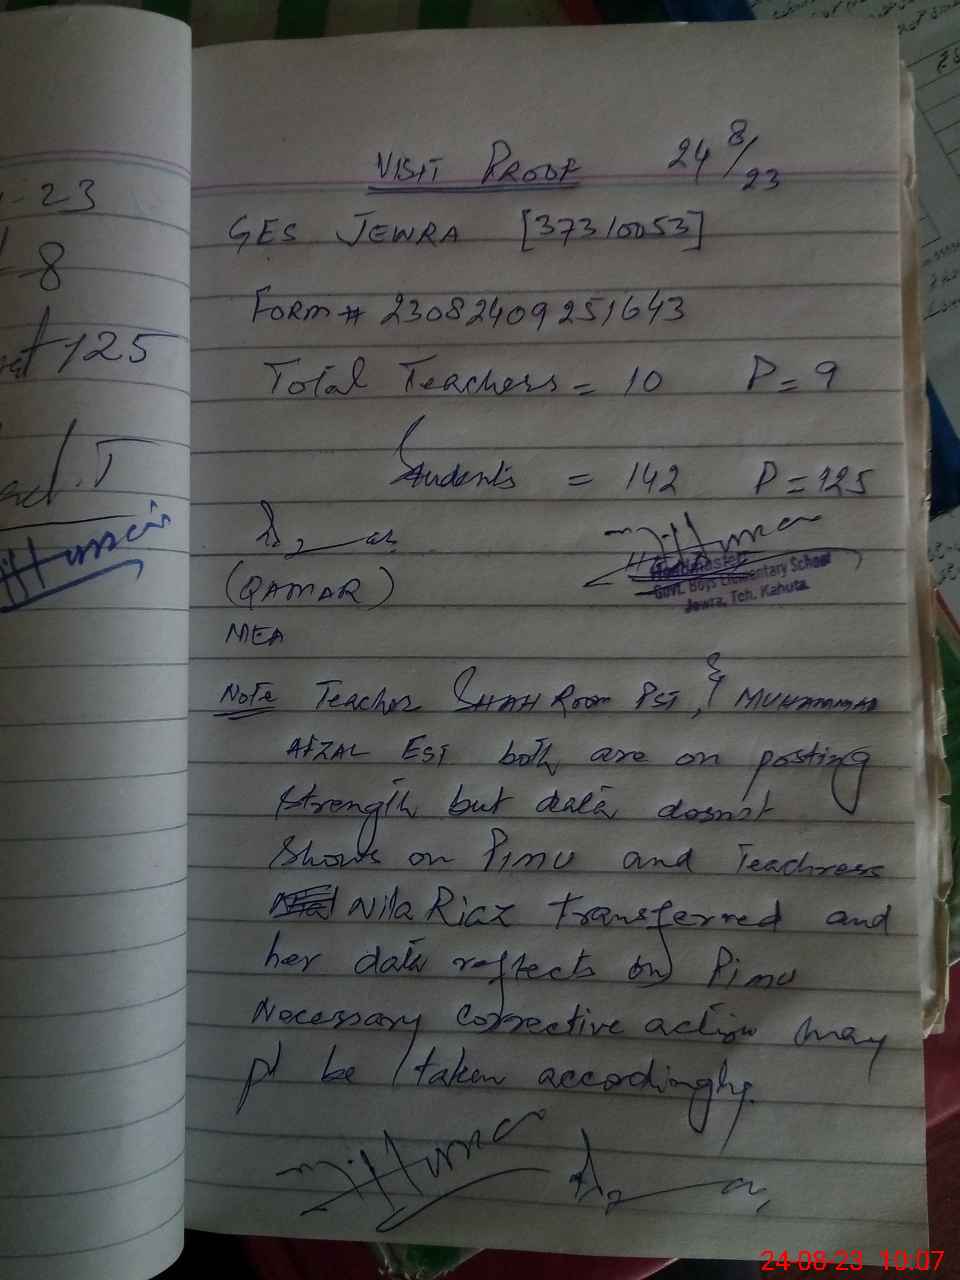 - 23
- 8
125
VISIT PROOF 24 8/23
GES JEWRA [37310053]
FORM # 23082409251643
Total Teachers = 10 P = 9
Students = 142 P = 125
(QAMAR)
Headmaster
Govt. Boys Elementary School
Jewra, Teh. Kahuta
MEA
Note Teacher SHAH Room PST, & MUHAMMAD
AFZAL EST both are on posting
strength but data dosnot
Shows on Pimu and Teachress
Nila Riaz transferred and
her data reflects on Pimu
Necessary corrective action may
pl be taken accodingly.
24-08-23 10:07